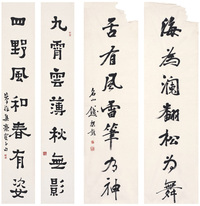 海為瀾翻松為舞
舌有風雷筆乃神
名山錢振鍠
九霄雲薄秋無影
四野風和春有姿